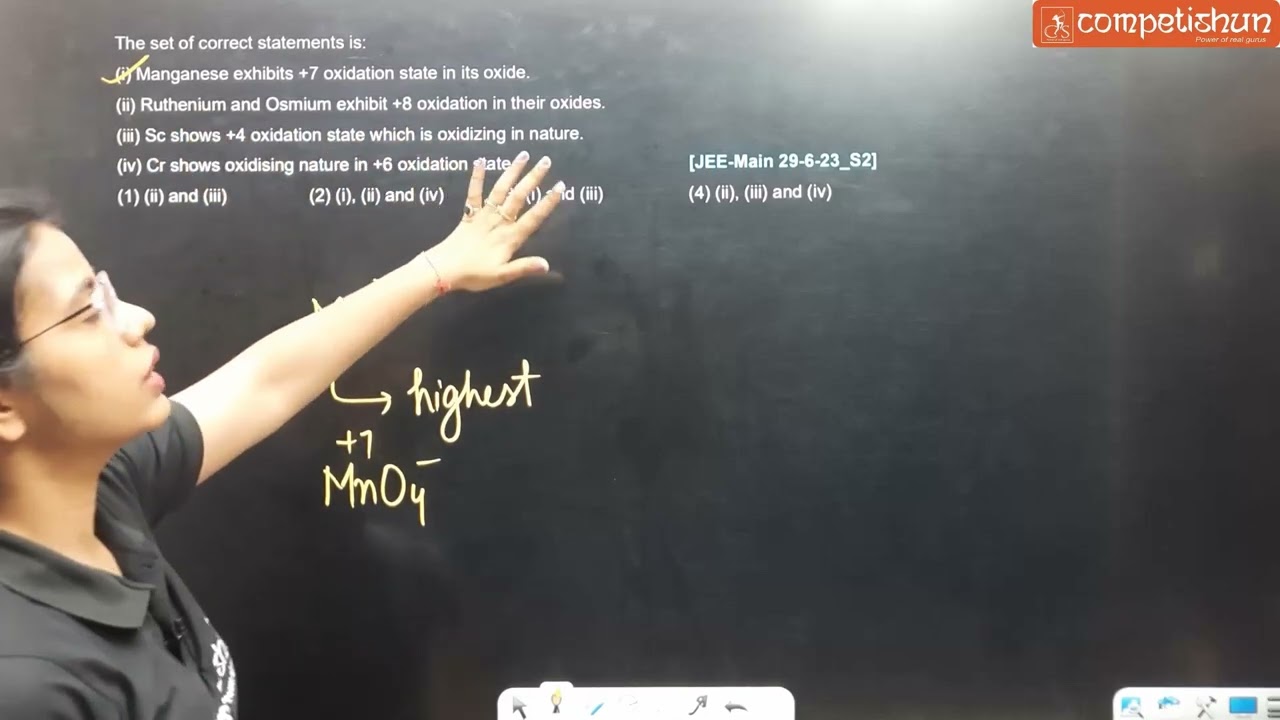 competishun
Power of real gurus
The set of correct statements is:
(i) Manganese exhibits +7 oxidation state in its oxide.
(ii) Ruthenium and Osmium exhibit +8 oxidation in their oxides.
(iii) Sc shows +4 oxidation state which is oxidizing in nature.
(iv) Cr shows oxidising nature in +6 oxidation state [JEE-Main 29-6-23_S2]
(1) (ii) and (iii) (2) (i), (ii) and (iv) (i) and (iii) (4) (ii), (iii) and (iv)
highest
+7
MnO4⁻